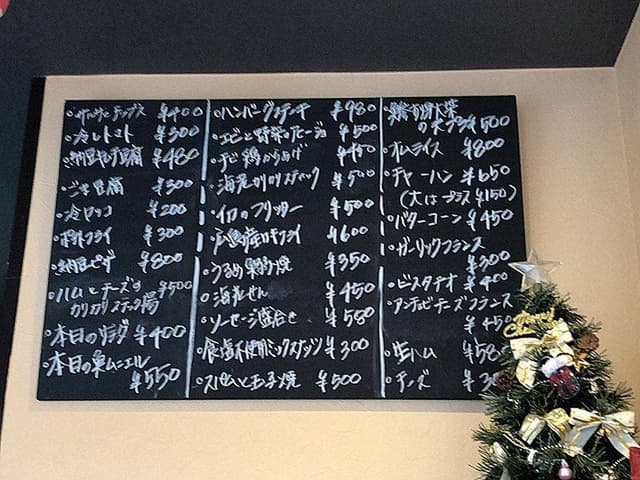 ・サルサチップス ¥400
・冷しトマト ¥300
・納豆 豆腐 ¥480
・ごま豆腐 ¥300
・冷ヤッコ ¥200
・ポテトフライ ¥300
・納豆ピザ ¥800
・ハムとチーズの
カリカリスティック揚 ¥500
・本日のサラダ ¥400
・本日の ムニエル
¥550
・ハンバーグステーキ ¥980
・エビと野菜の ¥500
・チビ鶏からあげ ¥450
・海老カリカリスティック ¥500
・イカのフリッター ¥500
・広島産カキフライ ¥600
・うるめ 焼 ¥350
・海老せん ¥450
・ソーセージ盛合せ ¥580
・食塩不使用ミックスナッツ ¥300
・スパムと玉子焼 ¥500
・鶏 大葉
の天プラ ¥500
・オムライス ¥800
・チャーハン ¥650
(大はプラス¥150)
・バターコーン ¥450
・ガーリックフランス
¥300
・ピスタチオ ¥400
・アンチョビチーズフランス
¥450
・生ハム ¥58
・チーズ ¥3
Merry
Christmas